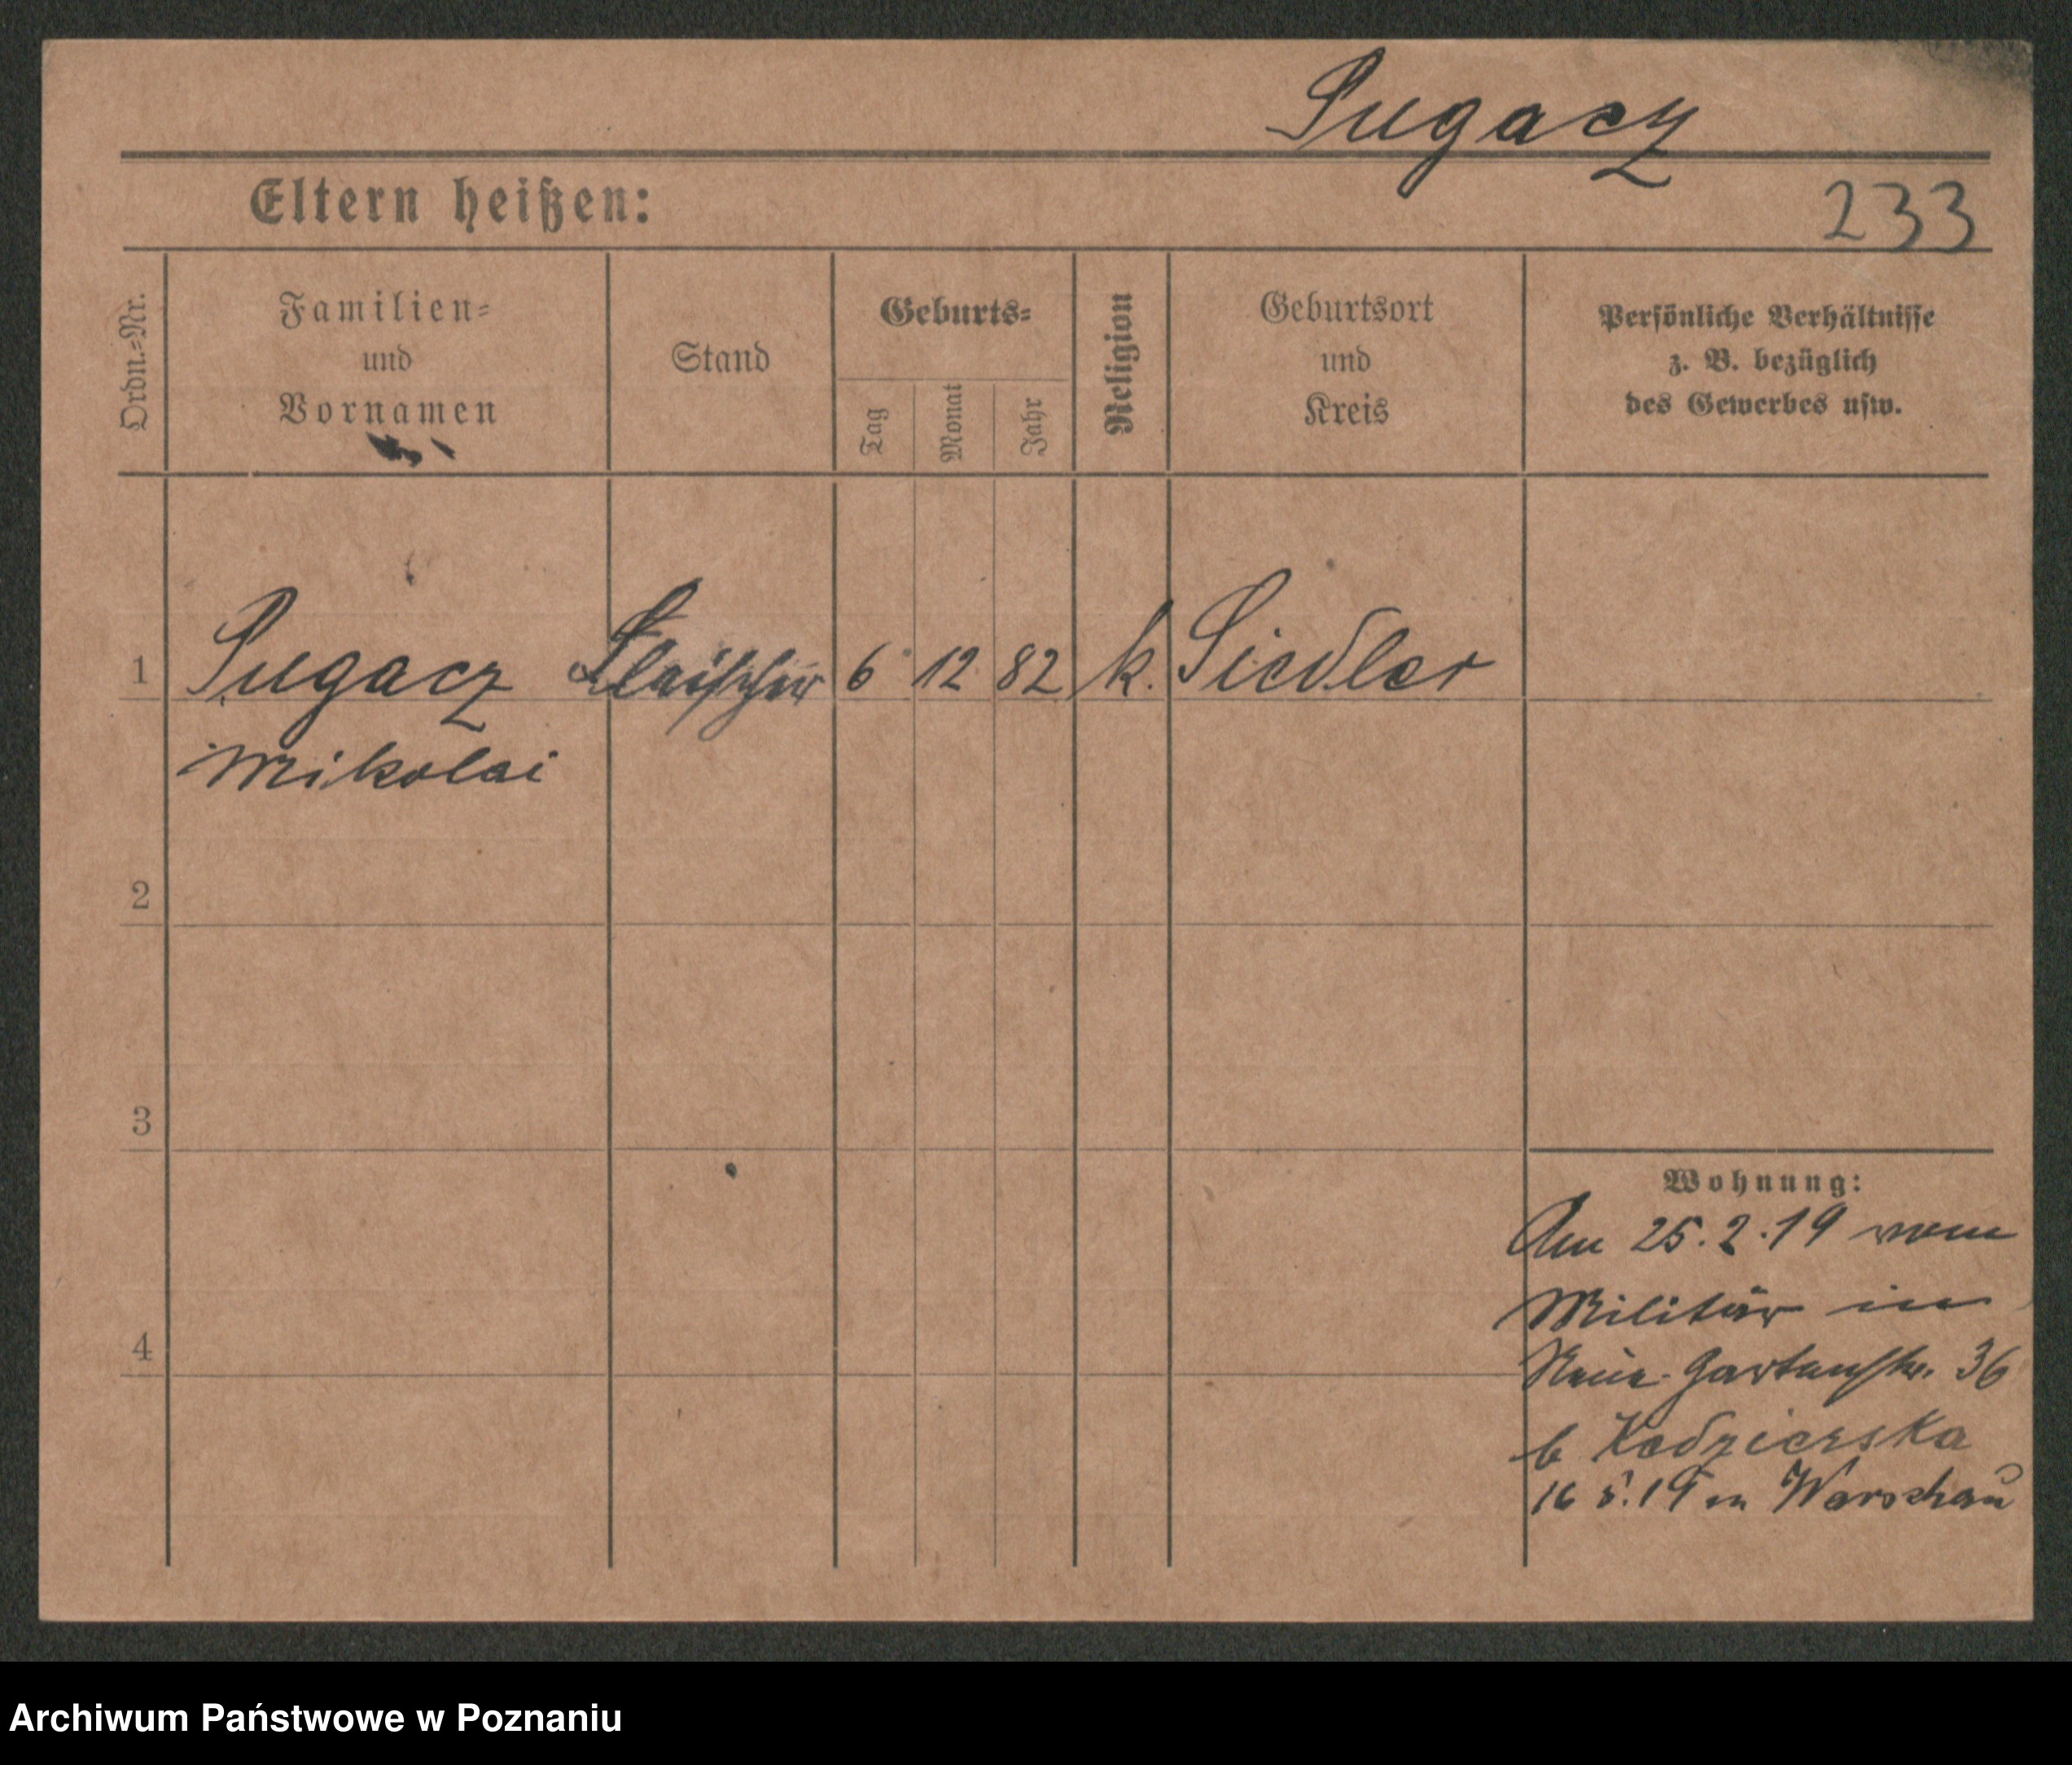 Pugacz
Eltern heißen:
233
Ordn.=Nr.
Familien=
und
Vornamen
Stand
Geburts=
Tag
Monat
Jahr
Religion
Geburtsort
und
Kreis
Persönliche Verhältnisse
z. B. bezüglich
des Gewerbes usw.
1 Pugacz Fleischer 6 12 82 k. Siedlec
Mikolai
2
3
4
Wohnung:
Am 25.2.19 vom
Militär in
Neue Gartenstr. 36
b Kadzierska
16 5.19 n Warschau
Archiwum Państwowe w Poznaniu